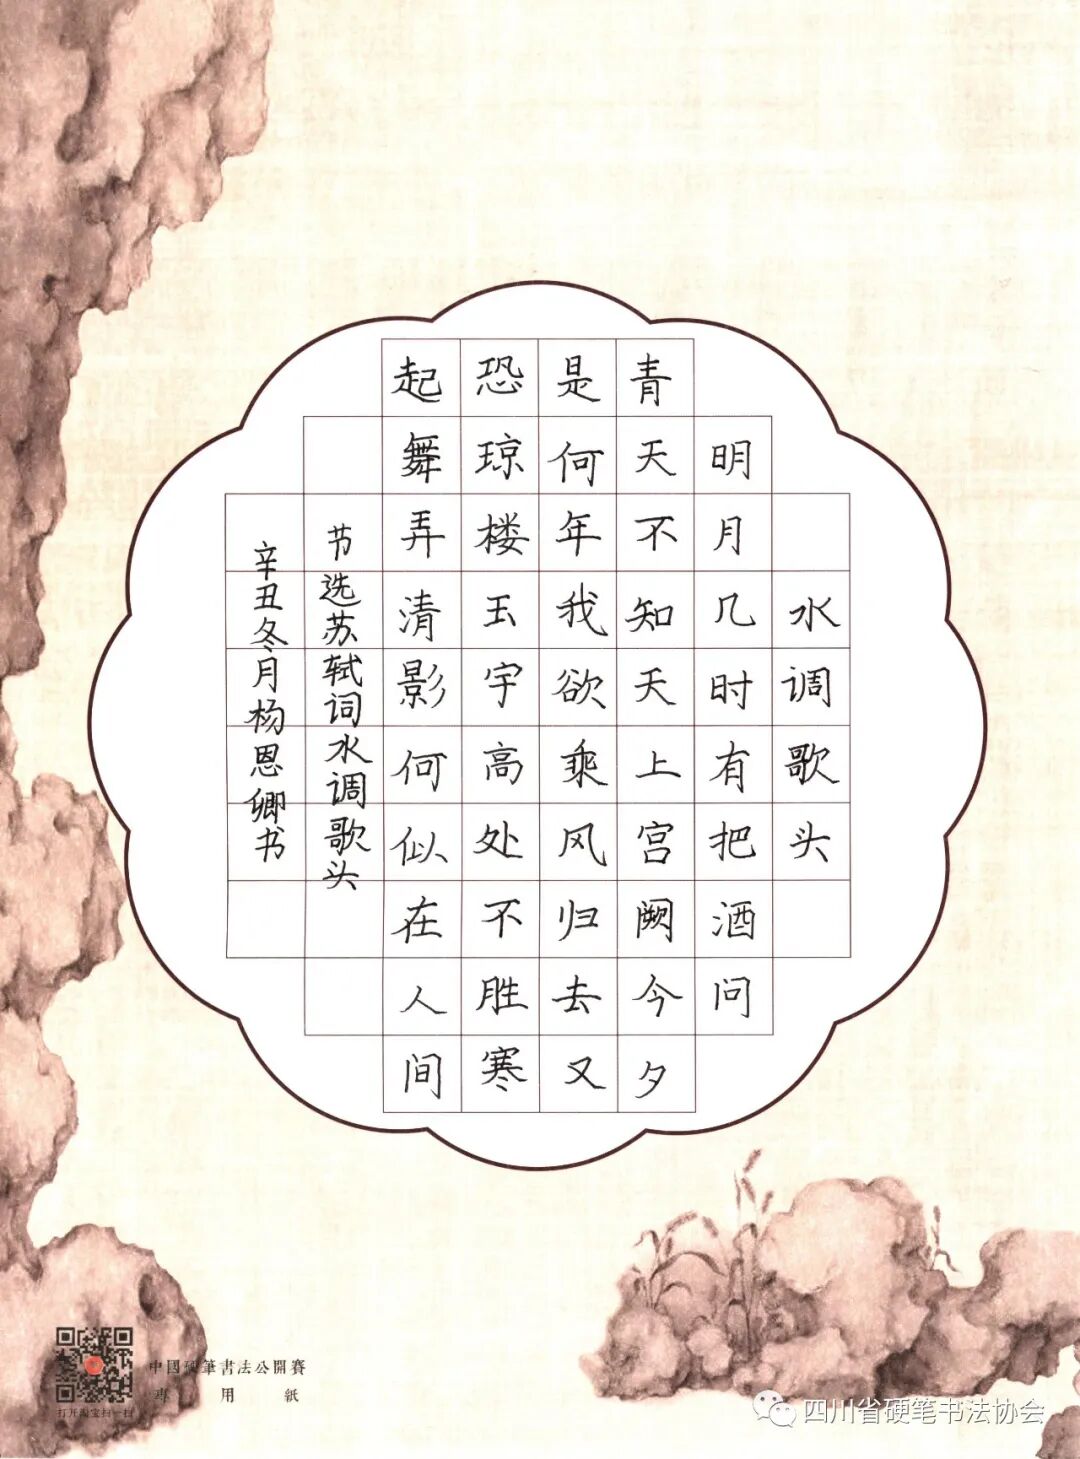 水调歌头
明月几时有把酒问
青天不知天上宫阙今夕
是何年我欲乘风归去又
恐琼楼玉宇高处不胜寒
起舞弄清影何似在人间
节选苏轼词水调歌头
辛丑冬月杨恩卿书
中國硬筆書法公開賽
專用紙
打开淘宝扫一扫
四川省硬笔书法协会